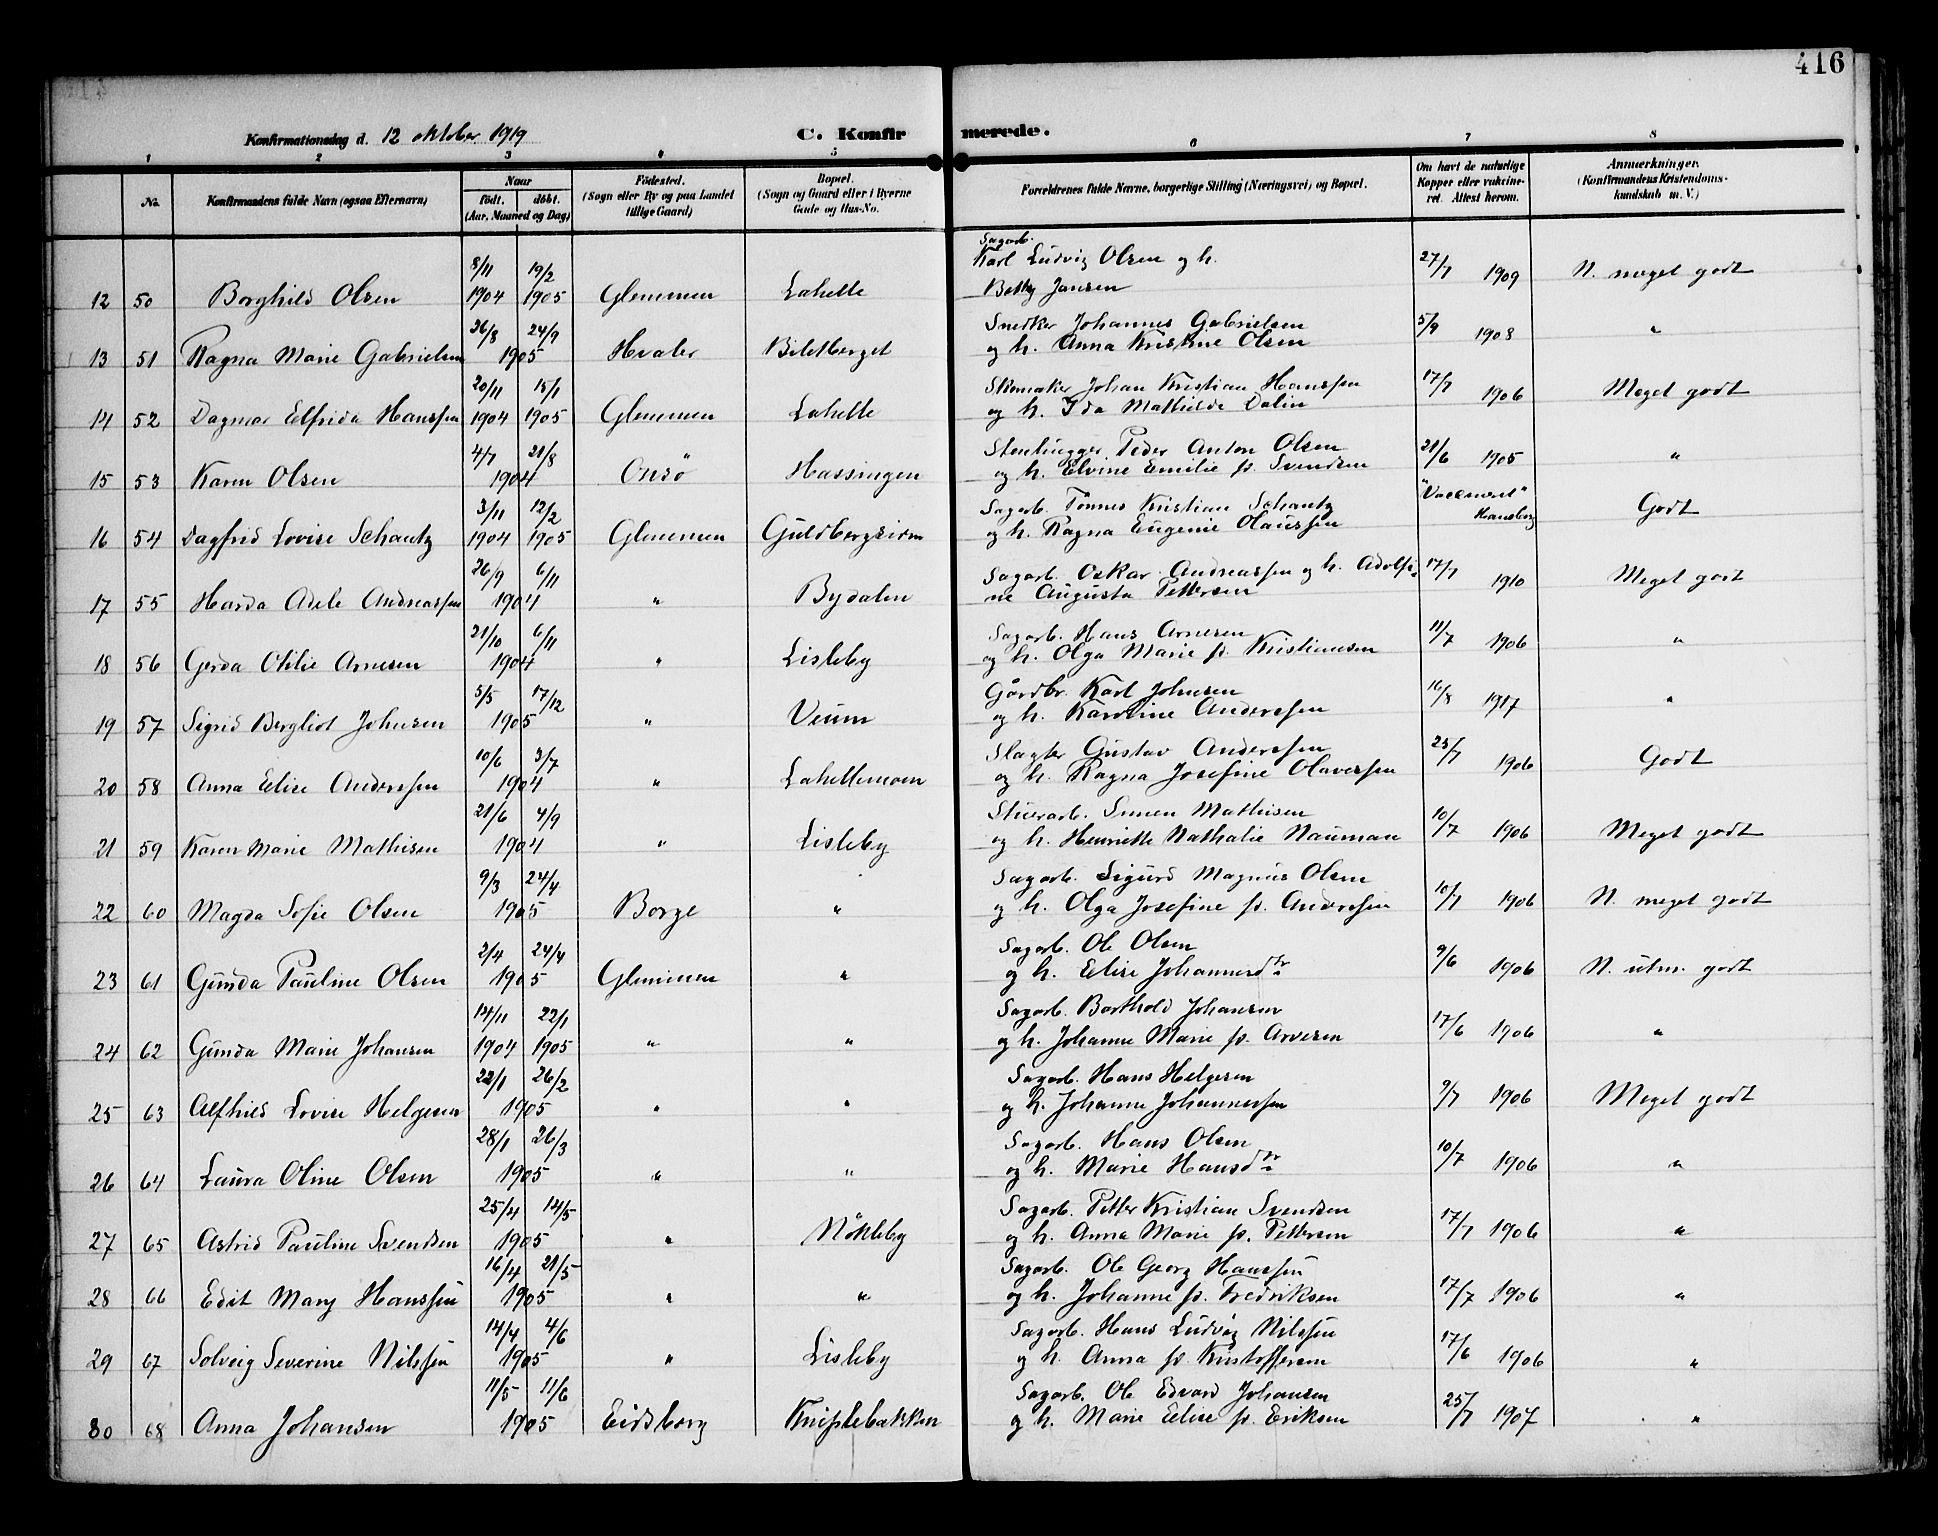 416
Konfirmationsdag d. 12 oktober 1919
C. Konfirmerede.
1 2 3 4 5 6 7 8
No. Konfirmandens fulde Navn (ogsaa Efternavn) Naar født. døbt. (Aar, Maaned og Dag) Fødested. (Sogn eller By og paa Landet tillige Gaard) Bopæl. (Sogn og Gaard eller i Byerne Gade og Hus-No. Forældrenes fulde Navne, borgerlige Stilling (Næringsvei) og Bopæl. Om havt de naturlige Kopper eller vaksineret. Attest herom. Anmærkninger. (Konfirmandens Kristendomskundskab m. V.)
8/11 19/2 Sagarb. Karl Ludvig Olsen og h. 27/7
12 50 Borghild Olsen 1904 1905 Glemmen Lahelle Betty Jansen 1909 N. meget godt
26/8 24/9 Snedker Johannes Gabrielsen 5/9
13 51 Ragna Marie Gabrielsen 1905 Hvaler Bildberget og h. Anna Kristine Olsen 1908 "
20/11 15/1 Skomaker Johan Kristian Hanssen 17/7
14 52 Dagmar Elfrida Hanssen 1904 1905 Glemmen Lahelle og h. Ida Mathilde Dalin 1906 Meget godt
4/7 21/8 Stenhugger Peder Anton Olsen 21/6
15 53 Karen Olsen 1904 Onsö Hassingen og h. Elvine Emilie f. Svendsen 1905 "
3/11 12/2 Sagarb. Tönnes Kristian Schantz
16 54 Dagfrid Lovise Schantz 1904 1905 Glemmen og h. Ragna Eugenie Olaussen Godt
26/9 6/11 Sagarb. Oskar Andreassen og h. Adolfi- 17/7
17 55 Harda Adele Andreassen 1904 " Bydalen ne Augusta Pettersen 1910 Meget godt
21/10 6/11 Sagarb. Hans Arnesen 11/7
18 56 Gerda Otilie Arnesen 1904 " Lisleby og h. Olga Marie f. Kristiansen 1906 "
5/5 17/12 Gårdbr. Karl Johnsen 16/8
19 57 Sigrid Bergliot Johnsen 1905 " Veum og h. Karoline Anderssen 1917 "
10/6 3/7 Slagter Gustav Anderssen 25/7
20 58 Anna Elise Anderssen 1904 " Lahellemoen og h. Ragna Josefine Olaverssen 1906 Godt
21/6 4/9 Mathisen 10/7
21 59 Karen Marie Mathisen 1904 " Lisleby og h. Henriette Nathalie Nauman 1906 Meget godt
9/3 24/4 Sagarb. Sigurd Magnus Olsen 10/7
22 60 Magda Sofie Olsen 1905 Borge " og h. Olga Josefine f. Anderssen 1906 N. meget godt
2/4 24/4 Sagarb. Ole Olsen 9/6
23 61 Gunda Pauline Olsen 1905 Glemmen " og h. Elise Johannesdtr 1906 N. utm. godt
14/11 22/1 Sagarb. Barthold Johansen 17/6
24 62 Gunda Marie Johansen 1904 1905 " " og h. Johanne Marie f. Arvesen 1906 "
22/1 26/2 Sagarb. Hans Helgesen 9/7
25 63 Alfhild Lovise Helgesen 1905 " " og h. Johanne Johannessen 1906 Meget godt
28/1 26/3 Sagarb. Hans Olsen 10/7
26 64 Laura Oline Olsen 1905 " " og h. Marie Hansdtr 1906 "
25/4 14/5 Sagarb. Petter Kristian Svendsen 17/7
27 65 Astrid Pauline Svendsen 1905 " Nökleby og h. Anna Marie f. Pettersen 1906 "
16/4 21/5 Sagarb. Ole Georg Hanssen 17/7
28 66 Edit Mary Hanssen 1905 " " og h. Johanne f. Fredriksen 1906 "
14/4 4/6 Sagarb. Hans Ludvig Nilssen 17/6
29 67 Solveig Severine Nilssen 1905 " Lisleby og h. Anna f. Kristoffersen 1906 "
11/5 11/6 Sagarb. Ole Edvard Johansen 25/7
30 68 Anna Johansen 1905 Eidsberg Kniplebakken og h. Marie Elise f. Eriksen 1907 "